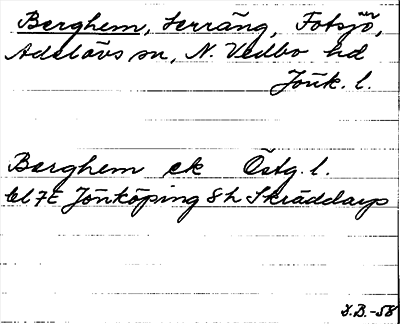 Berghem, Terräng, Fotsjön,
Adelövs sn, N. Vedbo hd
Jönk. l.
Berghem ek Östg. l.
bl 7E Jönköping 8h Skräddarp
J.B.-58